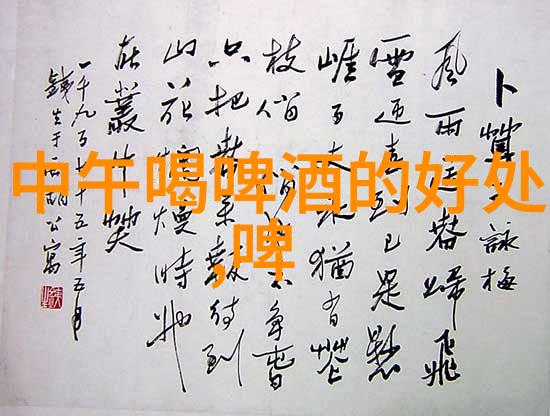 中午喝啤酒的好处
,啤
卜算子詠梅
風雨送春歸飛
雪迎春到已是懸
崖百丈冰猶有花
枝俏俏不爭春
只把春來報待到
山花爛熳時她
在叢中笑
一千九百七十五年五月
于西湖公寓